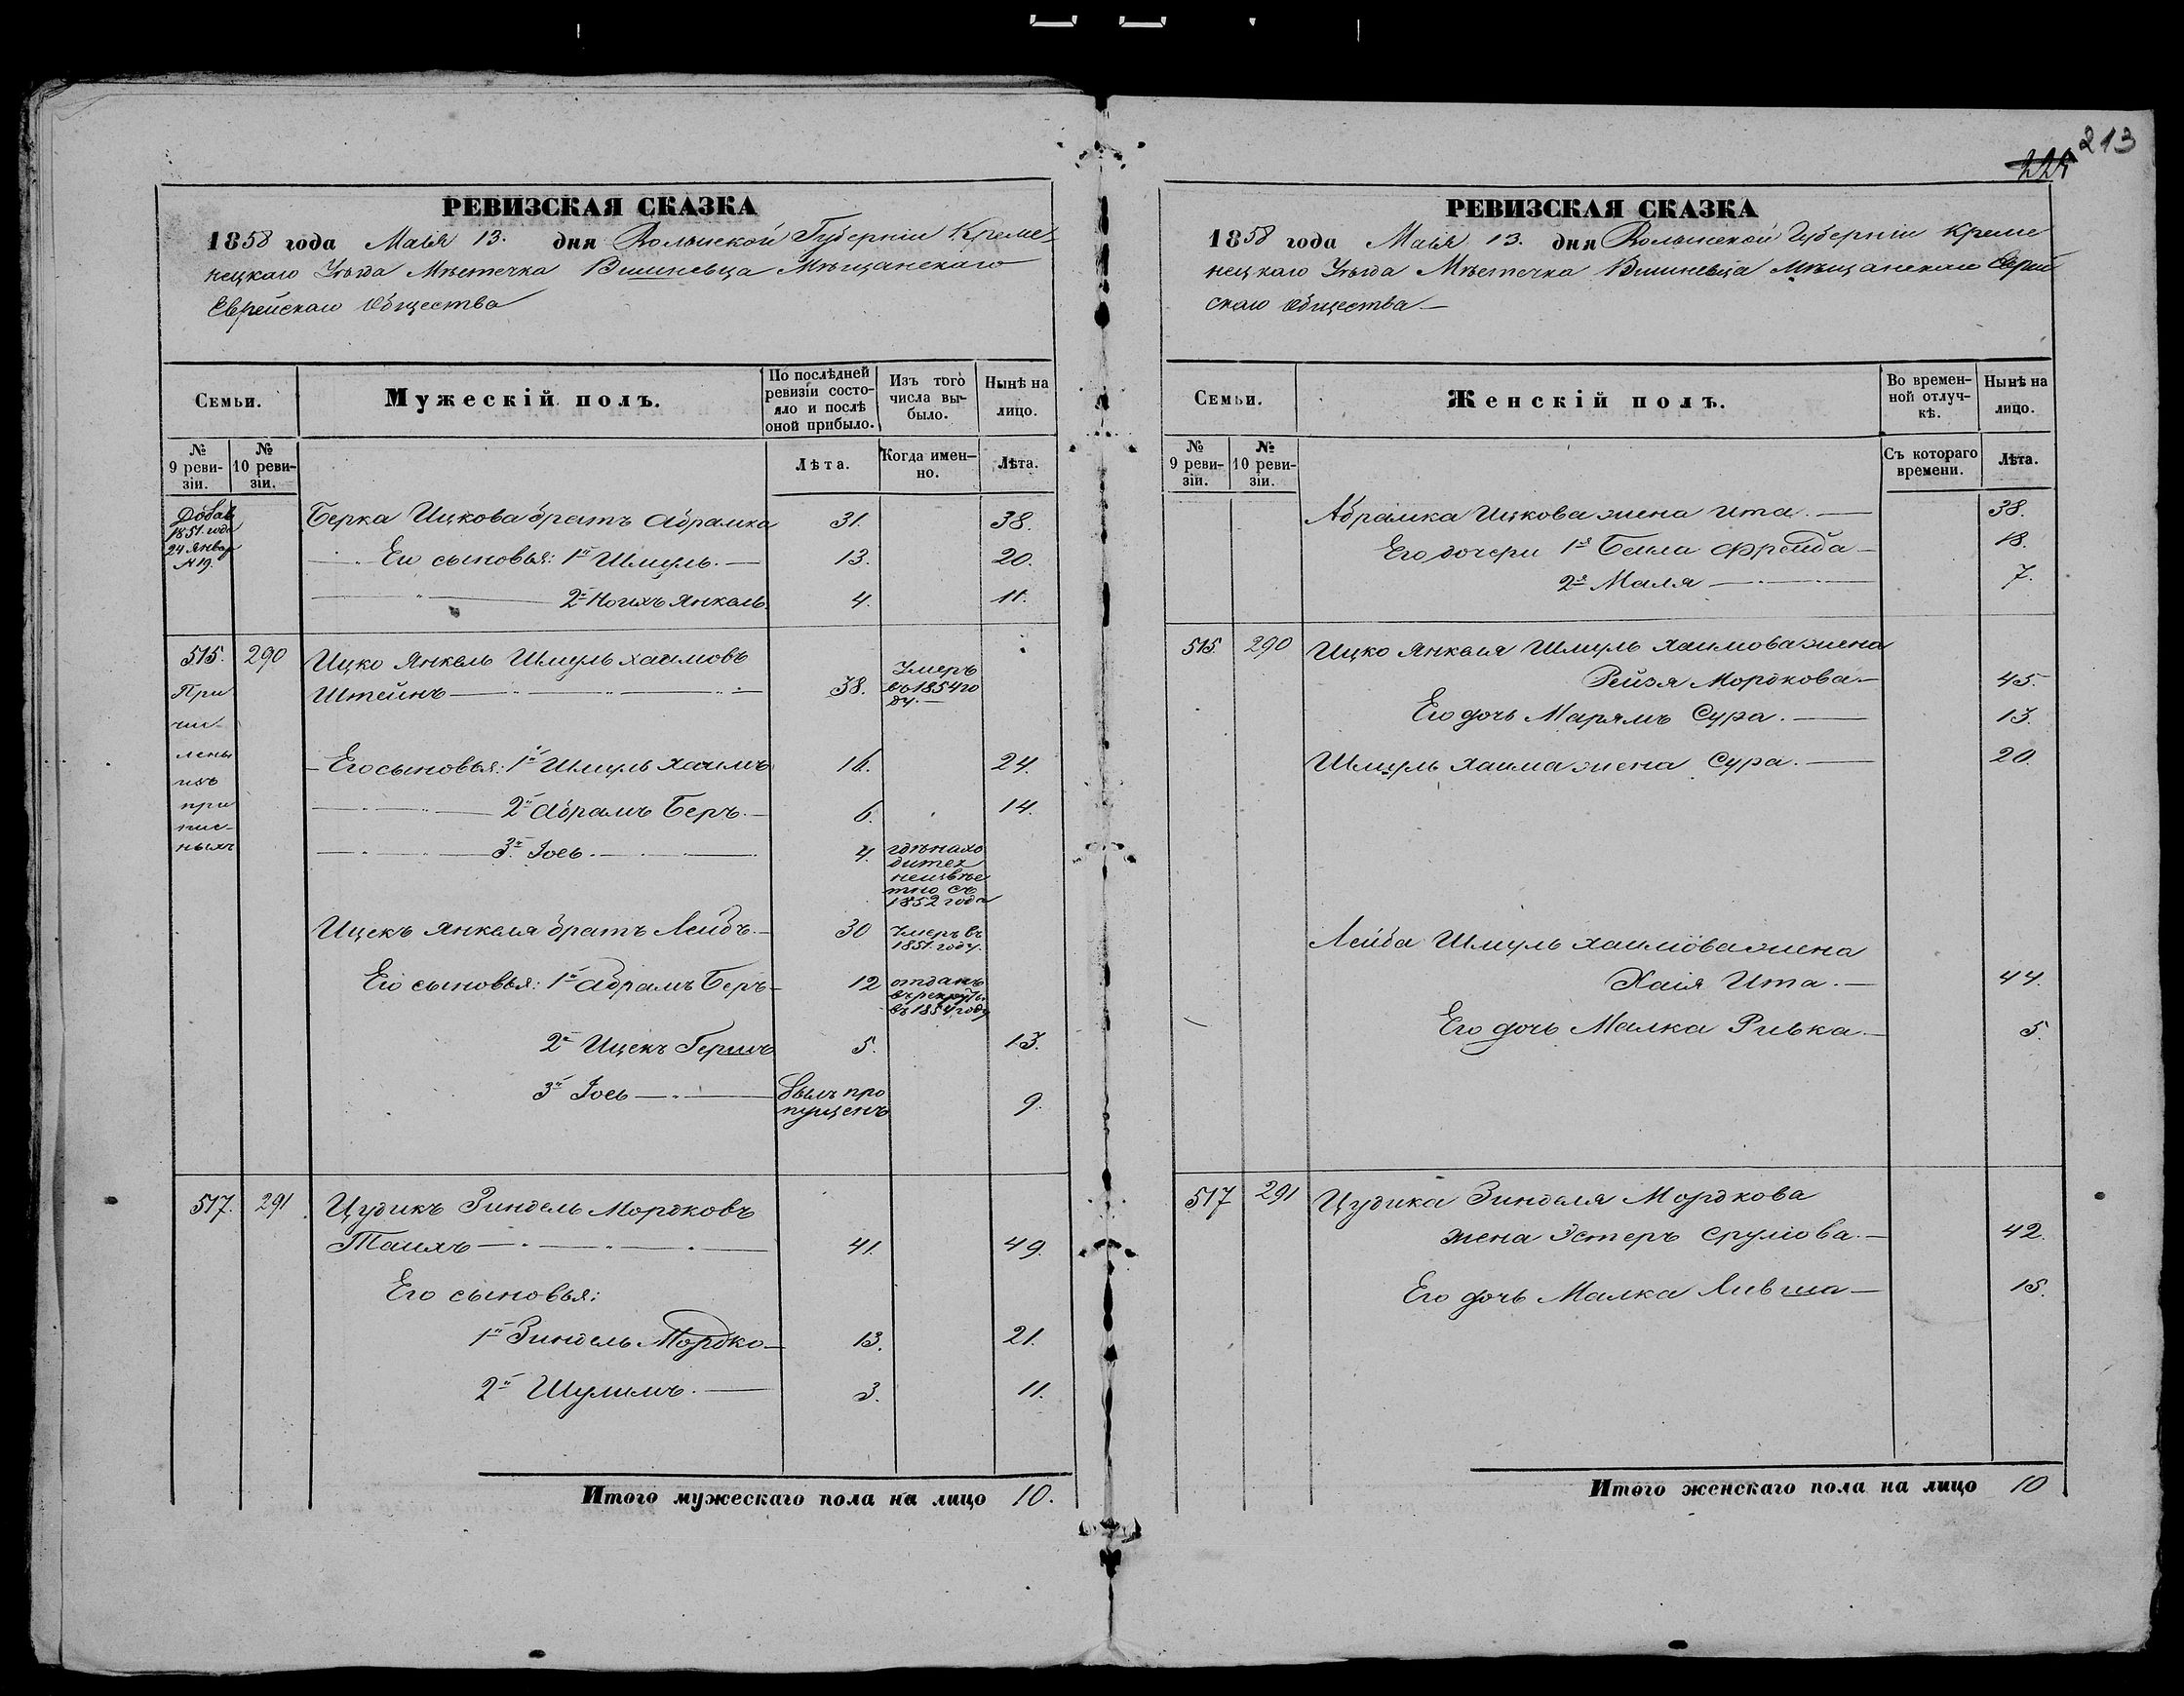 РЕВИЗСКАЯ СКАЗКА
1858 года Маія 13. дня Волынской Губерніи Креме-
нецкаго Уѣзда Мѣстечка Вишневца Мѣщанскаго
Еврейскаго Общества
Семьи.
Мужескій полъ.
По послѣдней ревизіи состояло и послѣ оной прибыло.
Изъ того числа выбыло.
Нынѣ на лицо.
№ 9 ревизіи.
№ 10 ревизіи.
Лѣта.
Когда именно.
Лѣта.
Добав
1851 года
24 Январ
№ 19.
Берка Ицкова братъ Абрамка 31. 38.
Его сыновья: 1й Шмуль. 13. 20.
2й Нотихъ Янкель. 4. 11.
515. 290 Ицко Янкель Шмуль Хаимовъ
Штейнъ 38. Умеръ въ 1854 го ду.
При
чи-
лены
изъ
при
пис-
ныхъ
Его сыновья: 1й Шмуль Хаимъ 16. 24.
2й Абрамъ Беръ. 6. 14.
3й Іось. 4. гдѣ нахо дится неизвѣс тно съ 1852 года
Ицекъ Янкеля братъ Лейбъ. 30 Умеръ въ 1851 году.
Его сыновья: 1й Абрамъ Беръ 12 отданъ въ рекруты въ 1854 году
2й Ицекъ Гершъ 5. 13.
3й Іось былъ про пущенъ 9.
517. 291 Цудикъ Зиндель Мордковъ
Таихъ 41. 49.
Его сыновья:
1й Зиндель Мордко 13. 21.
2й Шулимъ. 3. 11.
Итого мужескаго пола на лицо 10.
213
РЕВИЗСКАЯ СКАЗКА
1858 года Маія 13. дня Волынской Губерніи Креме
нецкаго Уѣзда Мѣстечка Вишневца Мѣщанскаго Еврей
скаго Общества
Семьи.
Женскій полъ.
Во временной отлучкѣ.
Нынѣ на лицо.
№ 9 ревизіи.
№ 10 ревизіи.
Съ котораго времени.
Лѣта.
Абрамка Ицкова жена Ита. 38.
Его дочери 1я Бейла Фрейда 18.
2я Маля 7.
515. 290 Ицко Янкеля Шмуль Хаимова жена
Рейзя Мордкова 45.
Его дочь Марямъ Сура. 13.
Шмуль Хаима жена Сура. 20.
Лейба Шмуль Хаимова жена
Хаія Ита. 44.
Его дочь Малка Ривка. 5.
517 291 Цудика Зинделя Мордкова
жена Эстеръ Срулова. 42.
Его дочь Малка Ливша 15.
Итого женскаго пола на лицо 10